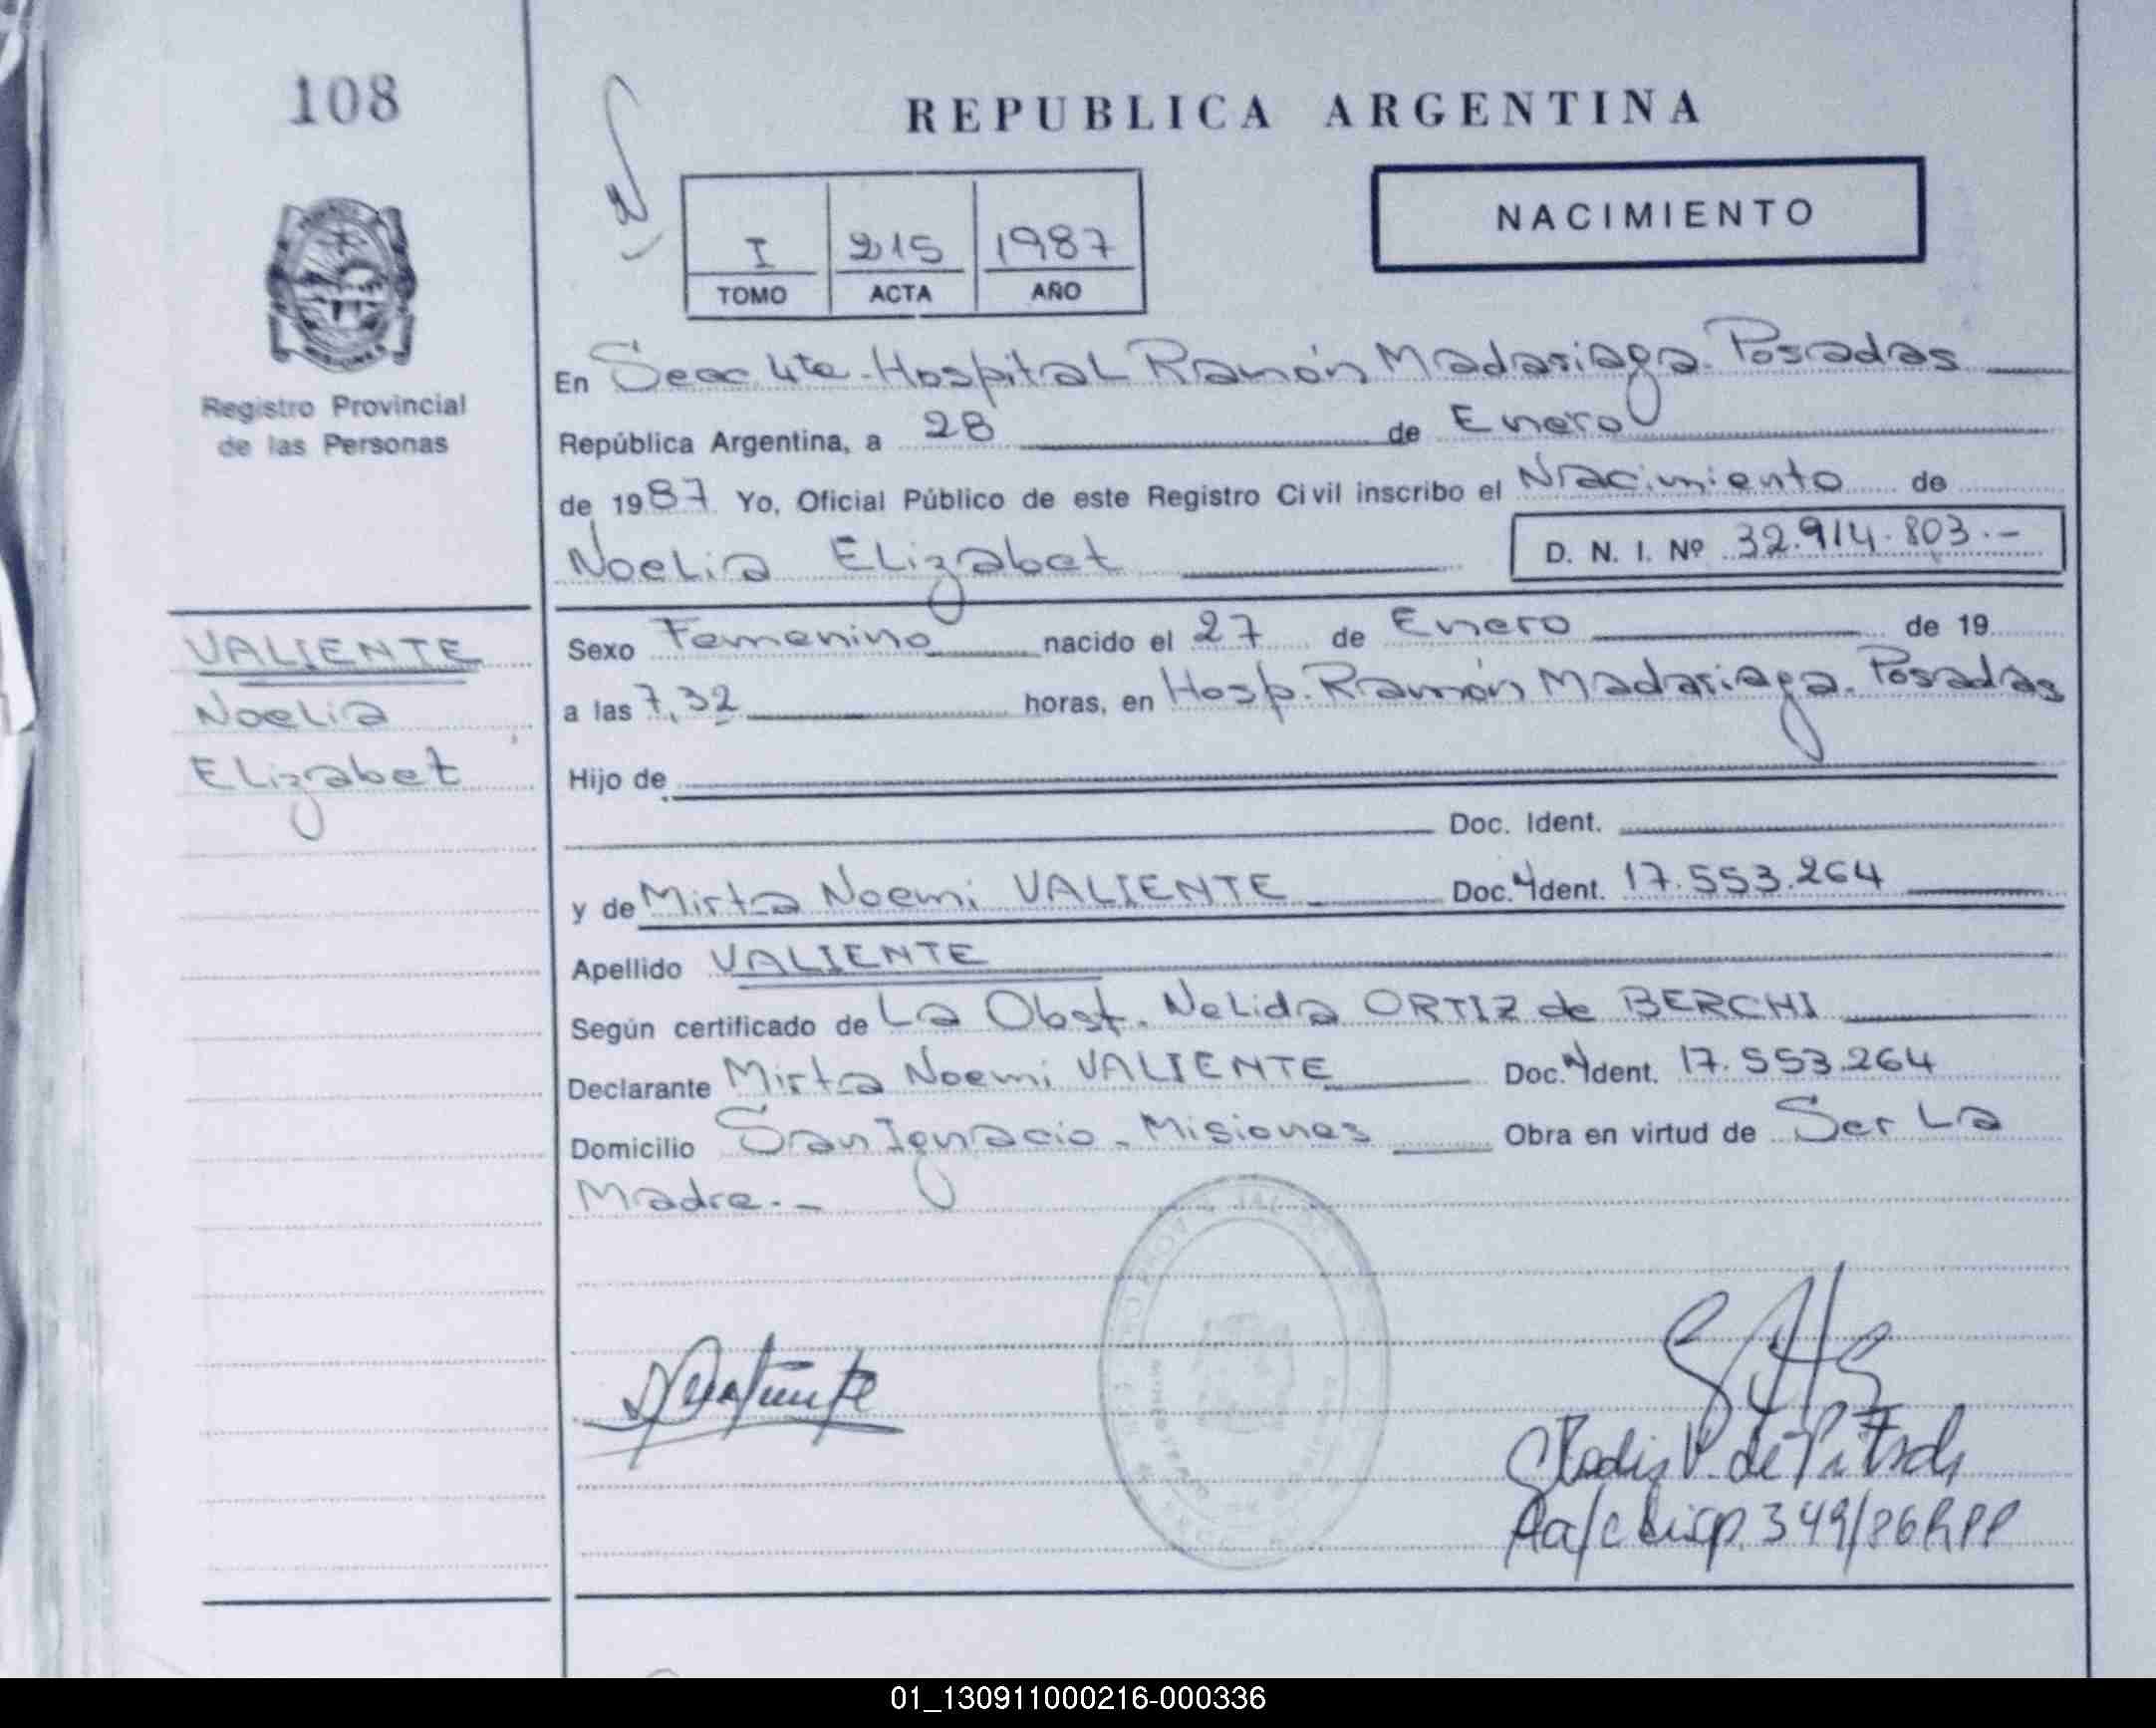 108
REPUBLICA ARGENTINA
NACIMIENTO
I 215 1987
TOMO ACTA AÑO
MISIONES
Registro Provincial
de las Personas
En Secc 4ta - Hospital Ramón Madariaga. Posadas
República Argentina, a 28 de Enero
de 1987 Yo, Oficial Público de este Registro Civil inscribo el Nacimiento de
Noelia Elizabet D. N. I. Nº 32.914.803.-
VALIENTE
Noelia
Elizabet
Sexo Femenino nacido el 27 de Enero de 19
a las 7,32 horas, en Hosp. Ramón Madariaga. Posadas
Hijo de
Doc. Ident.
y de Mirta Noemi VALIENTE Doc. Ident. 17.553.264
Apellido VALIENTE
Según certificado de La Obst. Nelida ORTIZ de BERCHI
Declarante Mirta Noemi VALIENTE Doc. Ident. 17.553.264
Domicilio San Ignacio - Misiones Obra en virtud de Ser La
Madre.-
V. de
Aa/c Disp. 349/86 RPP
01_130911000216-000336